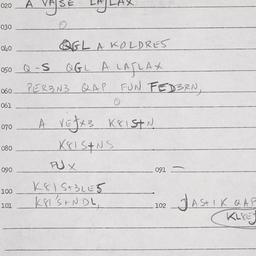 020 A VAʃSE LAʃLAX
030
040 QGL A KOLDRES
050 Q-S QGL A LAʃLAX
060 PER3N3 QAP FUN FED3RN,
061
070 A VEʃX3 K8IStN
080 K8IStNS
090 PUX 091 —
100 K8IS+3LE5
101 K8I'S+NDL, 102 JAS+IK QAP
KL8Eʃ